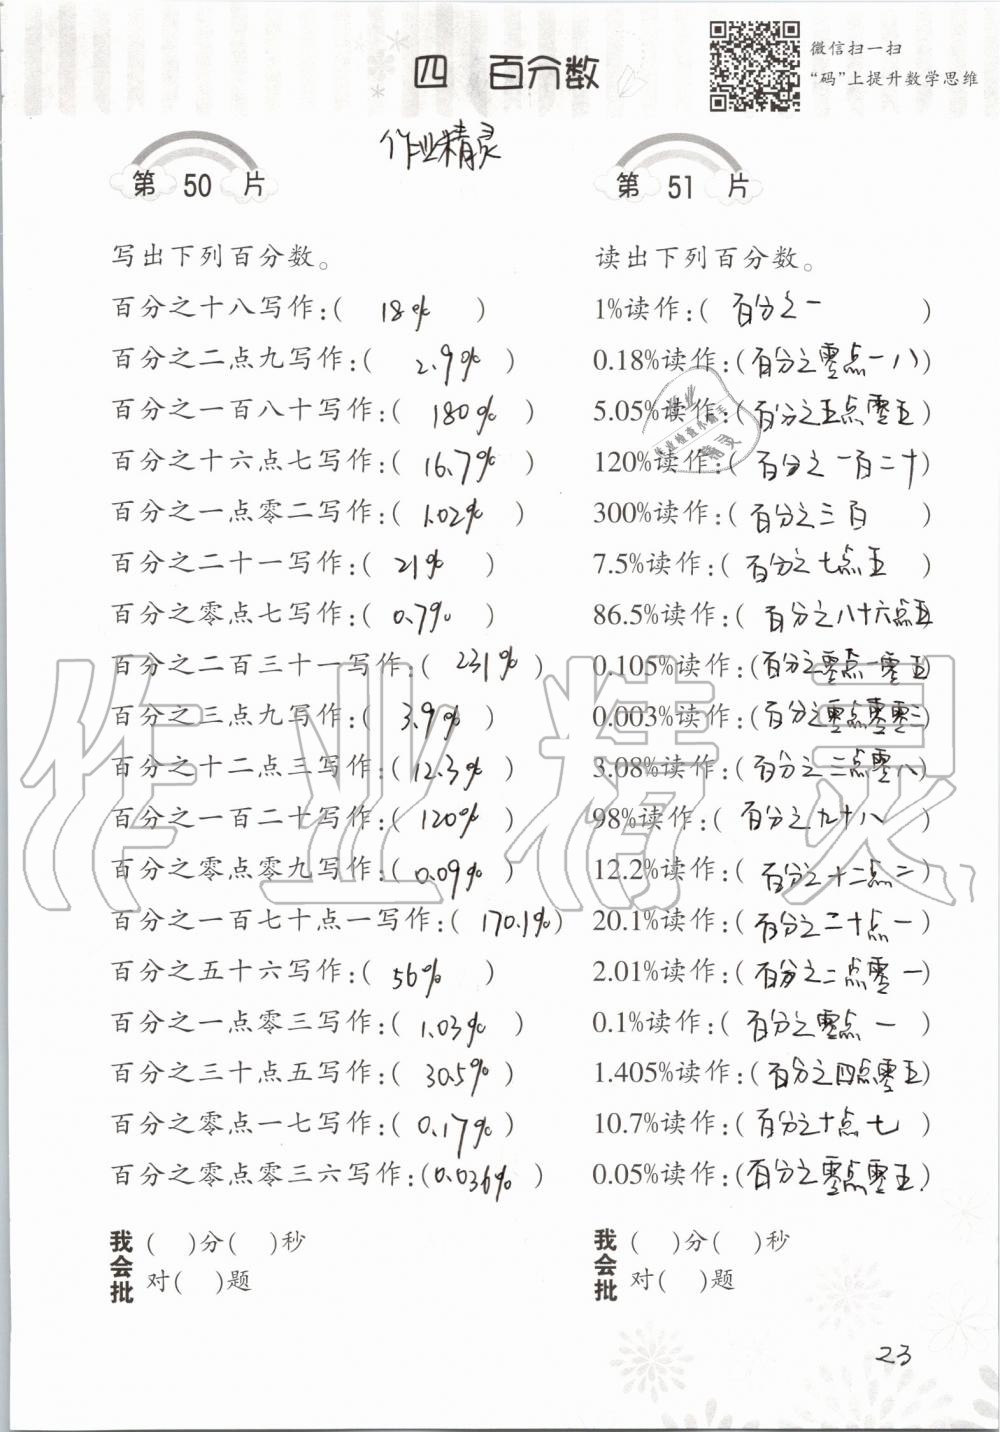 四 百分数
微信扫一扫
“码”上提升数学思维
作业精灵
第 50 片
写出下列百分数。
百分之十八写作:( 18% )
百分之二点九写作:( 2.9% )
百分之一百八十写作:( 180% )
百分之十六点七写作:( 16.7% )
百分之一点零二写作:( 1.02% )
百分之二十一写作:( 21% )
百分之零点七写作:( 0.7% )
百分之二百三十一写作:( 231% )
百分之三点九写作:( 3.9% )
百分之十二点三写作:( 12.3% )
百分之一百二十写作:( 120% )
百分之零点零九写作:( 0.09% )
百分之一百七十点一写作:( 170.1% )
百分之五十六写作:( 56% )
百分之一点零三写作:( 1.03% )
百分之三十点五写作:( 30.5% )
百分之零点一七写作:( 0.17% )
百分之零点零三六写作:( 0.036% )
我会批 ( )分( )秒
对( )题
第 51 片
读出下列百分数。
1%读作:( 百分之一 )
0.18%读作:( 百分之零点一八 )
5.05%读作:( 百分之五点零五 )
120%读作:( 百分之一百二十 )
300%读作:( 百分之三百 )
7.5%读作:( 百分之七点五 )
86.5%读作:( 百分之八十六点五
0.105%读作:( 百分之零点一零五 )
0.003%读作:( 百分之零点零零三 )
3.08%读作:( 百分之三点零八 )
98%读作:( 百分之九十八 )
12.2%读作:( 百分之十二点二 )
20.1%读作:( 百分之二十点一 )
2.01%读作:( 百分之二点零一 )
0.1%读作:( 百分之零点一 )
1.405%读作:( 百分之四点零五 )
10.7%读作:( 百分之十点七 )
0.05%读作:( 百分之零点零五 )
我会批 ( )分( )秒
对( )题
作业精灵
23